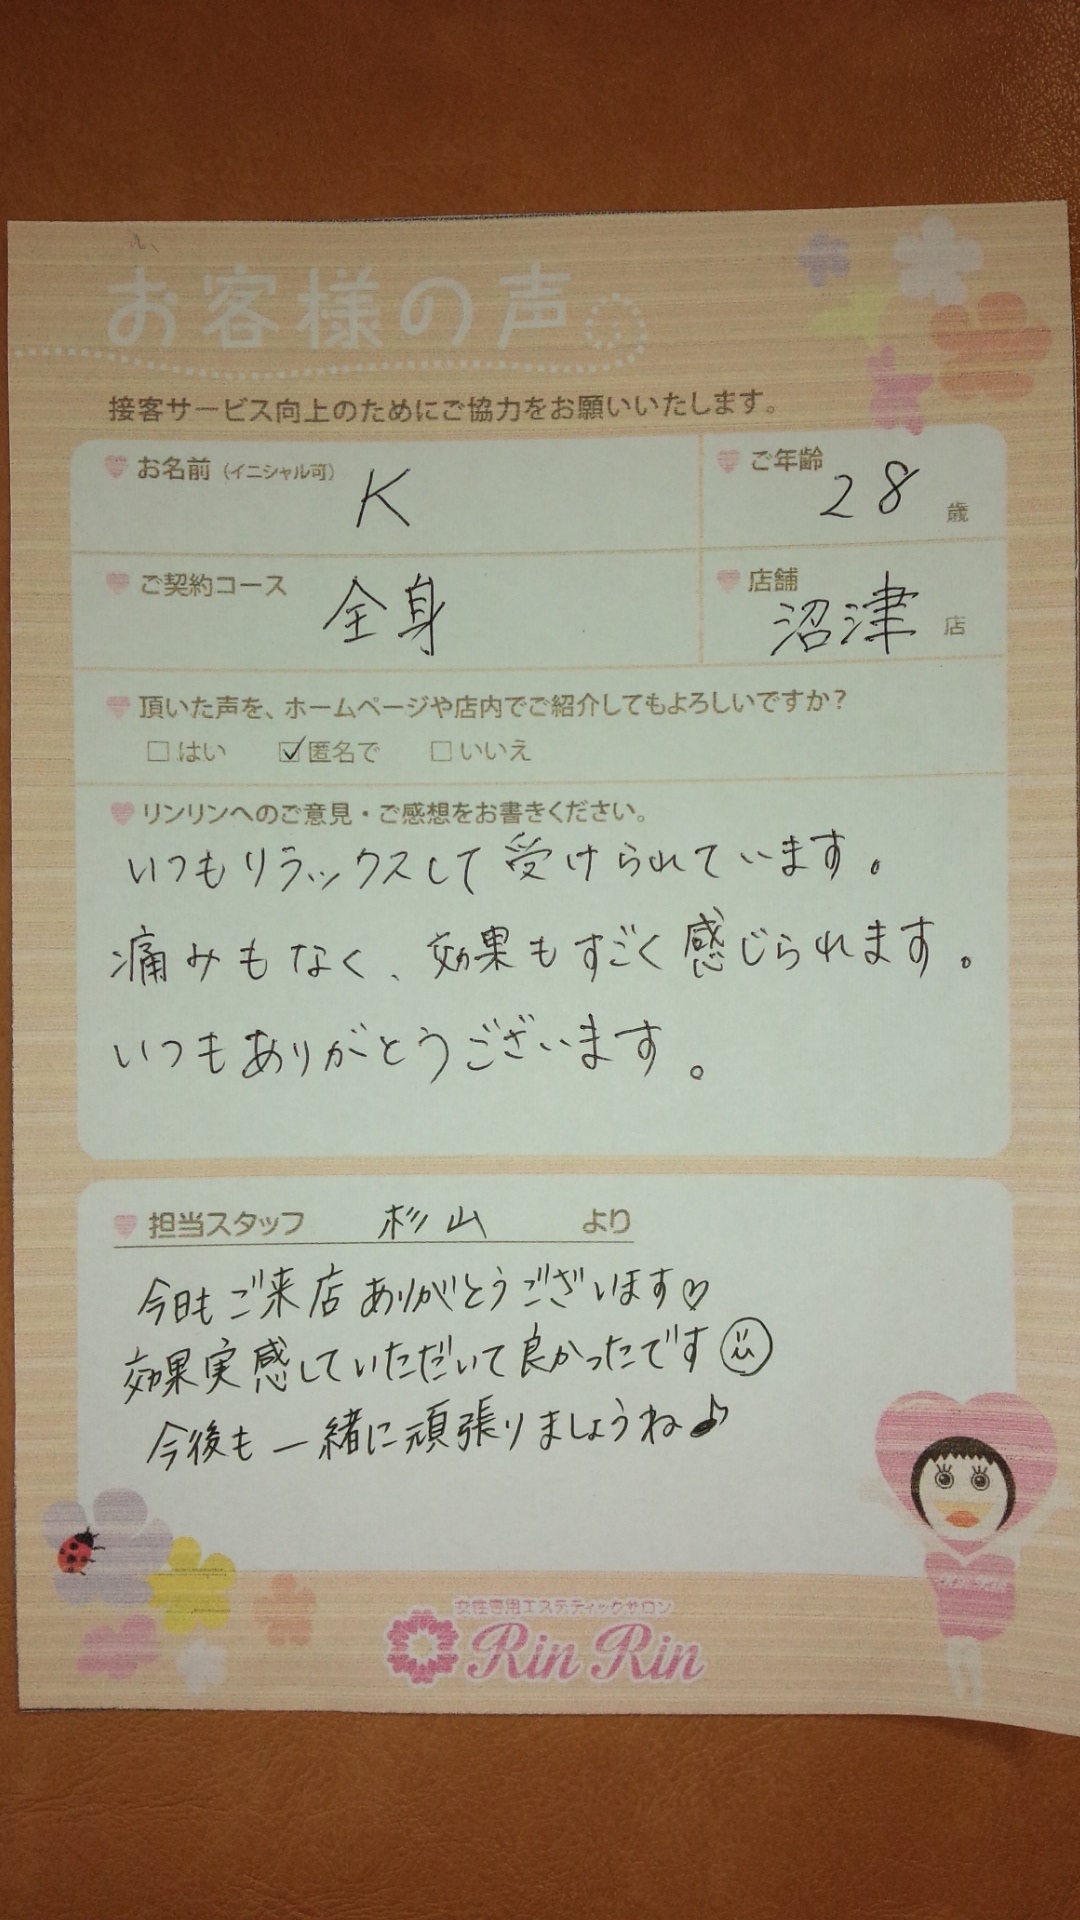 お客様の声。
接客サービス向上のためにご協力をお願いいたします。
お名前（イニシャル可） K
ご年齢 28 歳
ご契約コース 全身
店舗 沼津 店
頂いた声を、ホームページや店内でご紹介してもよろしいですか？
□はい ☑匿名で □いいえ
リンリンへのご意見・ご感想をお書きください。
いつもリラックスして受けられています。
痛みもなく、効果もすごく感じられます。
いつもありがとうございます。
担当スタッフ 杉山 より
今日もご来店ありがとうございます♡
効果実感していただいて良かったです☺
今後も一緒に頑張りましょうね♪
女性専用エステティックサロン
Rin Rin